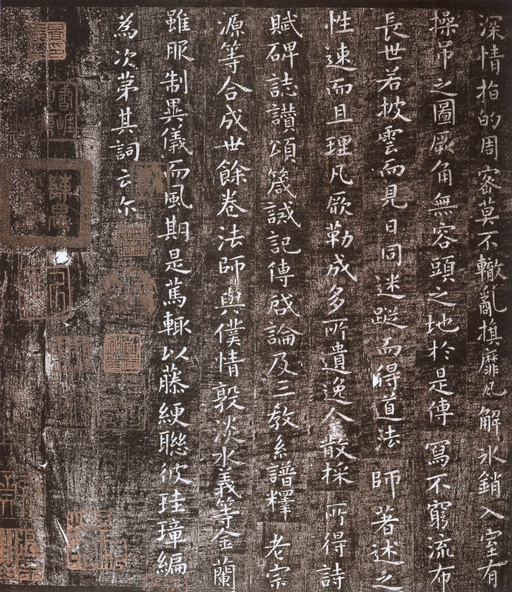 深情指的周密莫不轍亂旗靡凡解氷銷入室有
操吊之圖厥角無容頭之地於是傳寫不窮流布
長世若披雲而見日同迷蹤而得道法師著述之
性速而且理凡厥勒成多所遺逸今散採所得詩
賦碑誌讚頌箴誡記傳啟論及三教系譜釋老宗
源等合成世餘卷法師與僕情敦淡水義等金蘭
雖服制異儀而風期是篤輒以藤綆聯彼珪璋編
為次第其詞云尒